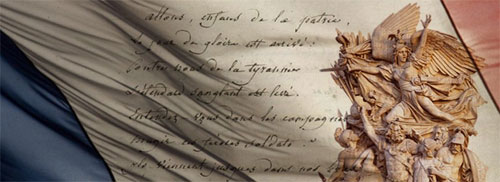 allons, enfans de la patrie,
Le jour de gloire est arrivé:
Contre nous de la tyrannie
L'étendard sanglant est levé.
Entendez vous dans les compagnes
mugir ces féroces soldats?
Ils viennent jusques dans nos bras